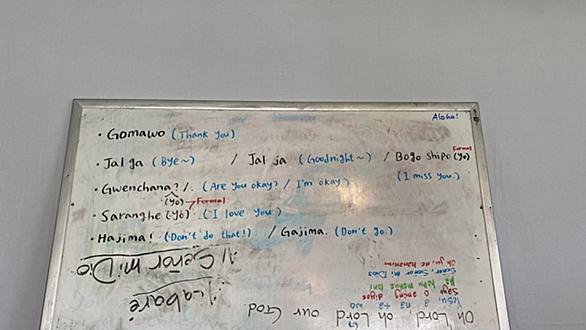 Aloha!
• Gomawo (Thank you)
• Jal ga (Bye~) / Jal ja (Goodnight~) / Bogo shipo (yo) Formal
• Gwenchana? /. (Are you okay? / I'm okay.) (I miss you.)
(yo) Formal
• Saranghe (yo) (I love you.)
• Hajima! (Don't do that!) / Gajima. (Don't go.)
Alabaré
A mi Señor
Oh Lord oh Lord our God
Señor Señor mi Dios